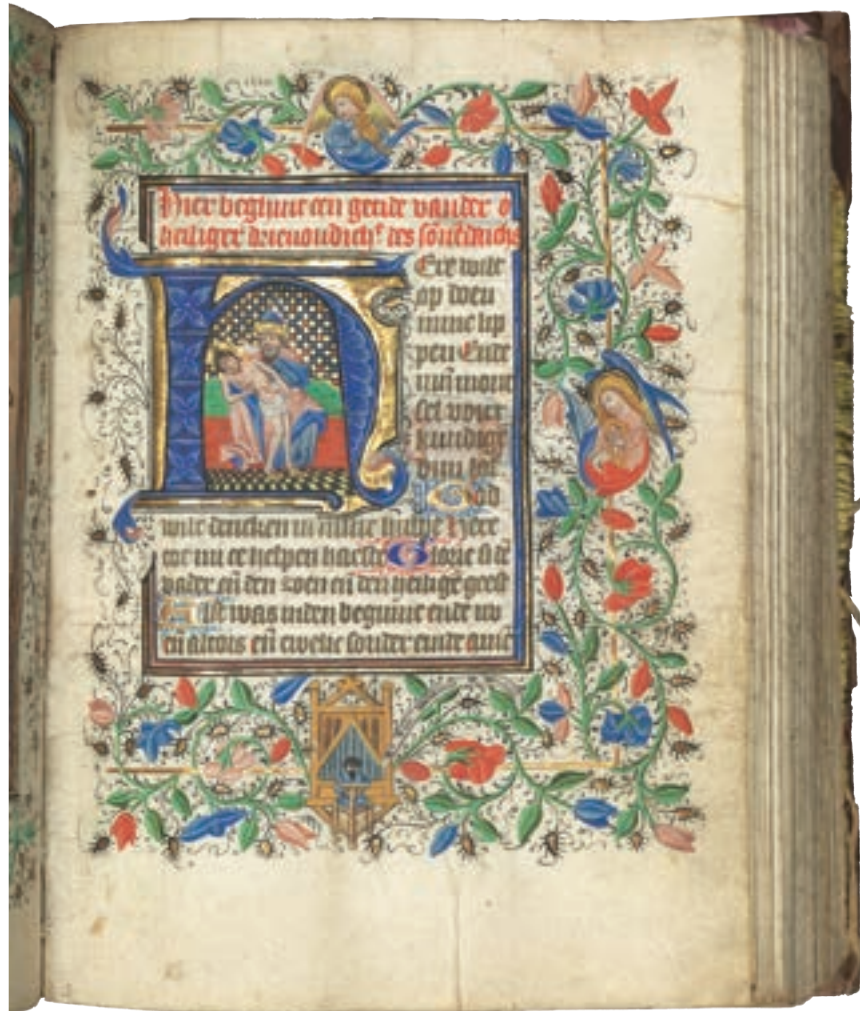 Hier beghint een getide vander
heiliger drievoudich^t des sonnēdachs
Here wilt
op doen
mine lip
pen Ende
min mont
sel voort
kundigē
dijn lof
God
wilt dencken in mine hulpe Here
tot mi te helpen haeste Glorie si dē
vader eñ den zoen eñ den heiligē geest
Alst was inden beginne ende nv
eñ altois eñ ewelic sonder einde